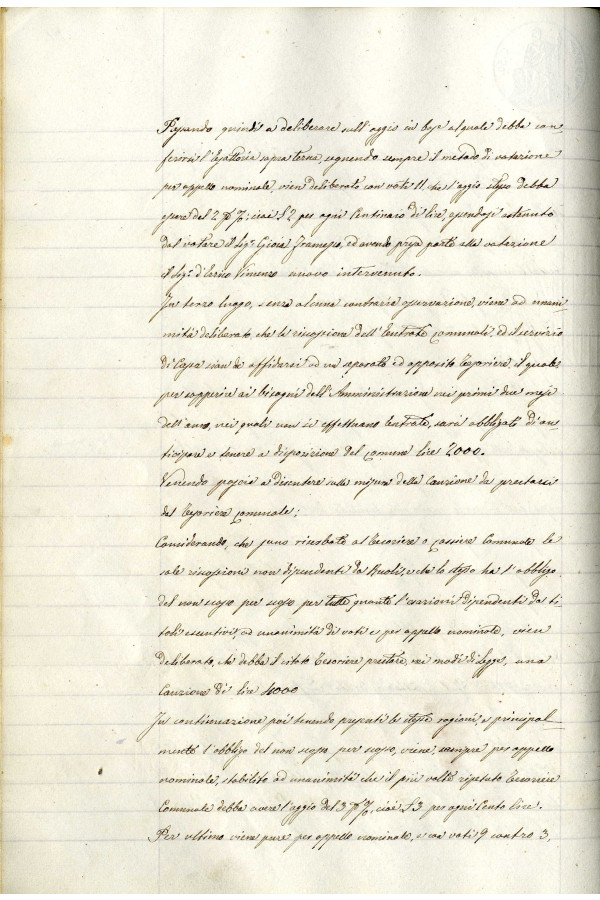 Passando quindi a deliberare sull'aggio in base al quale debba con-
ferirsi l'Esattoria sopra terna, seguendo sempre il metodo di votazione
per appello nominale, vien deliberato con voti 11, che l'aggio stesso debba
essere del 2 p%; cioè £ 2 per ogni Centinaio di lire, essendosi astenuto
dal votare il Sig. Gioia Francesco, ed avendo preso parte alla votazione
il Sig. d'Errico Vincenzo nuovo intervenuto.
In terzo luogo, senza alcuna contraria osservazione, viene ad unani-
mità deliberato, che la riscossione dell'Entrate Comunali, ed il servizio
di Cassa siano da affidarsi ad un separato ed apposito Tesoriere, il quale
per sopperire ai bisogni dell'Amministrazione nei primi due mesi
dell'anno, nei quali non si effettuano Entrate, sarà obbligato di an-
ticipare e tenere a disposizione del Comune lire 2000.
Venendo poscia a discutere sulla misura della Cauzione da prestarsi
dal Tesoriere Comunale;
Considerando, che sono riserbate al tesoriere o cassiere Comunale le
sole riscossioni non dipendenti da Ruoli, e che lo stesso ha l'obbligo
del non scosso per scosso per tutte quante l'esazioni dipendenti da ti-
toli esecutivi, ad unanimità di voti e per appello nominale, vien
deliberato, che debba il citato Tesoriere prestare, nei modi di Legge, una
Cauzione di lire 4000
In continuazione poi tenendo presenti le stesse ragioni, e principal-
mente l'obbligo del non scosso per scosso, viene, sempre per appello
nominale, stabilito ad unanimità che il più volte ripetuto Tesoriere
Comunale debba avere l'aggio del 3 p%, cioè £ 3 per ogni Cento lire.
Per ultimo viene pure per appello nominale, e con voti 9 contro 3,